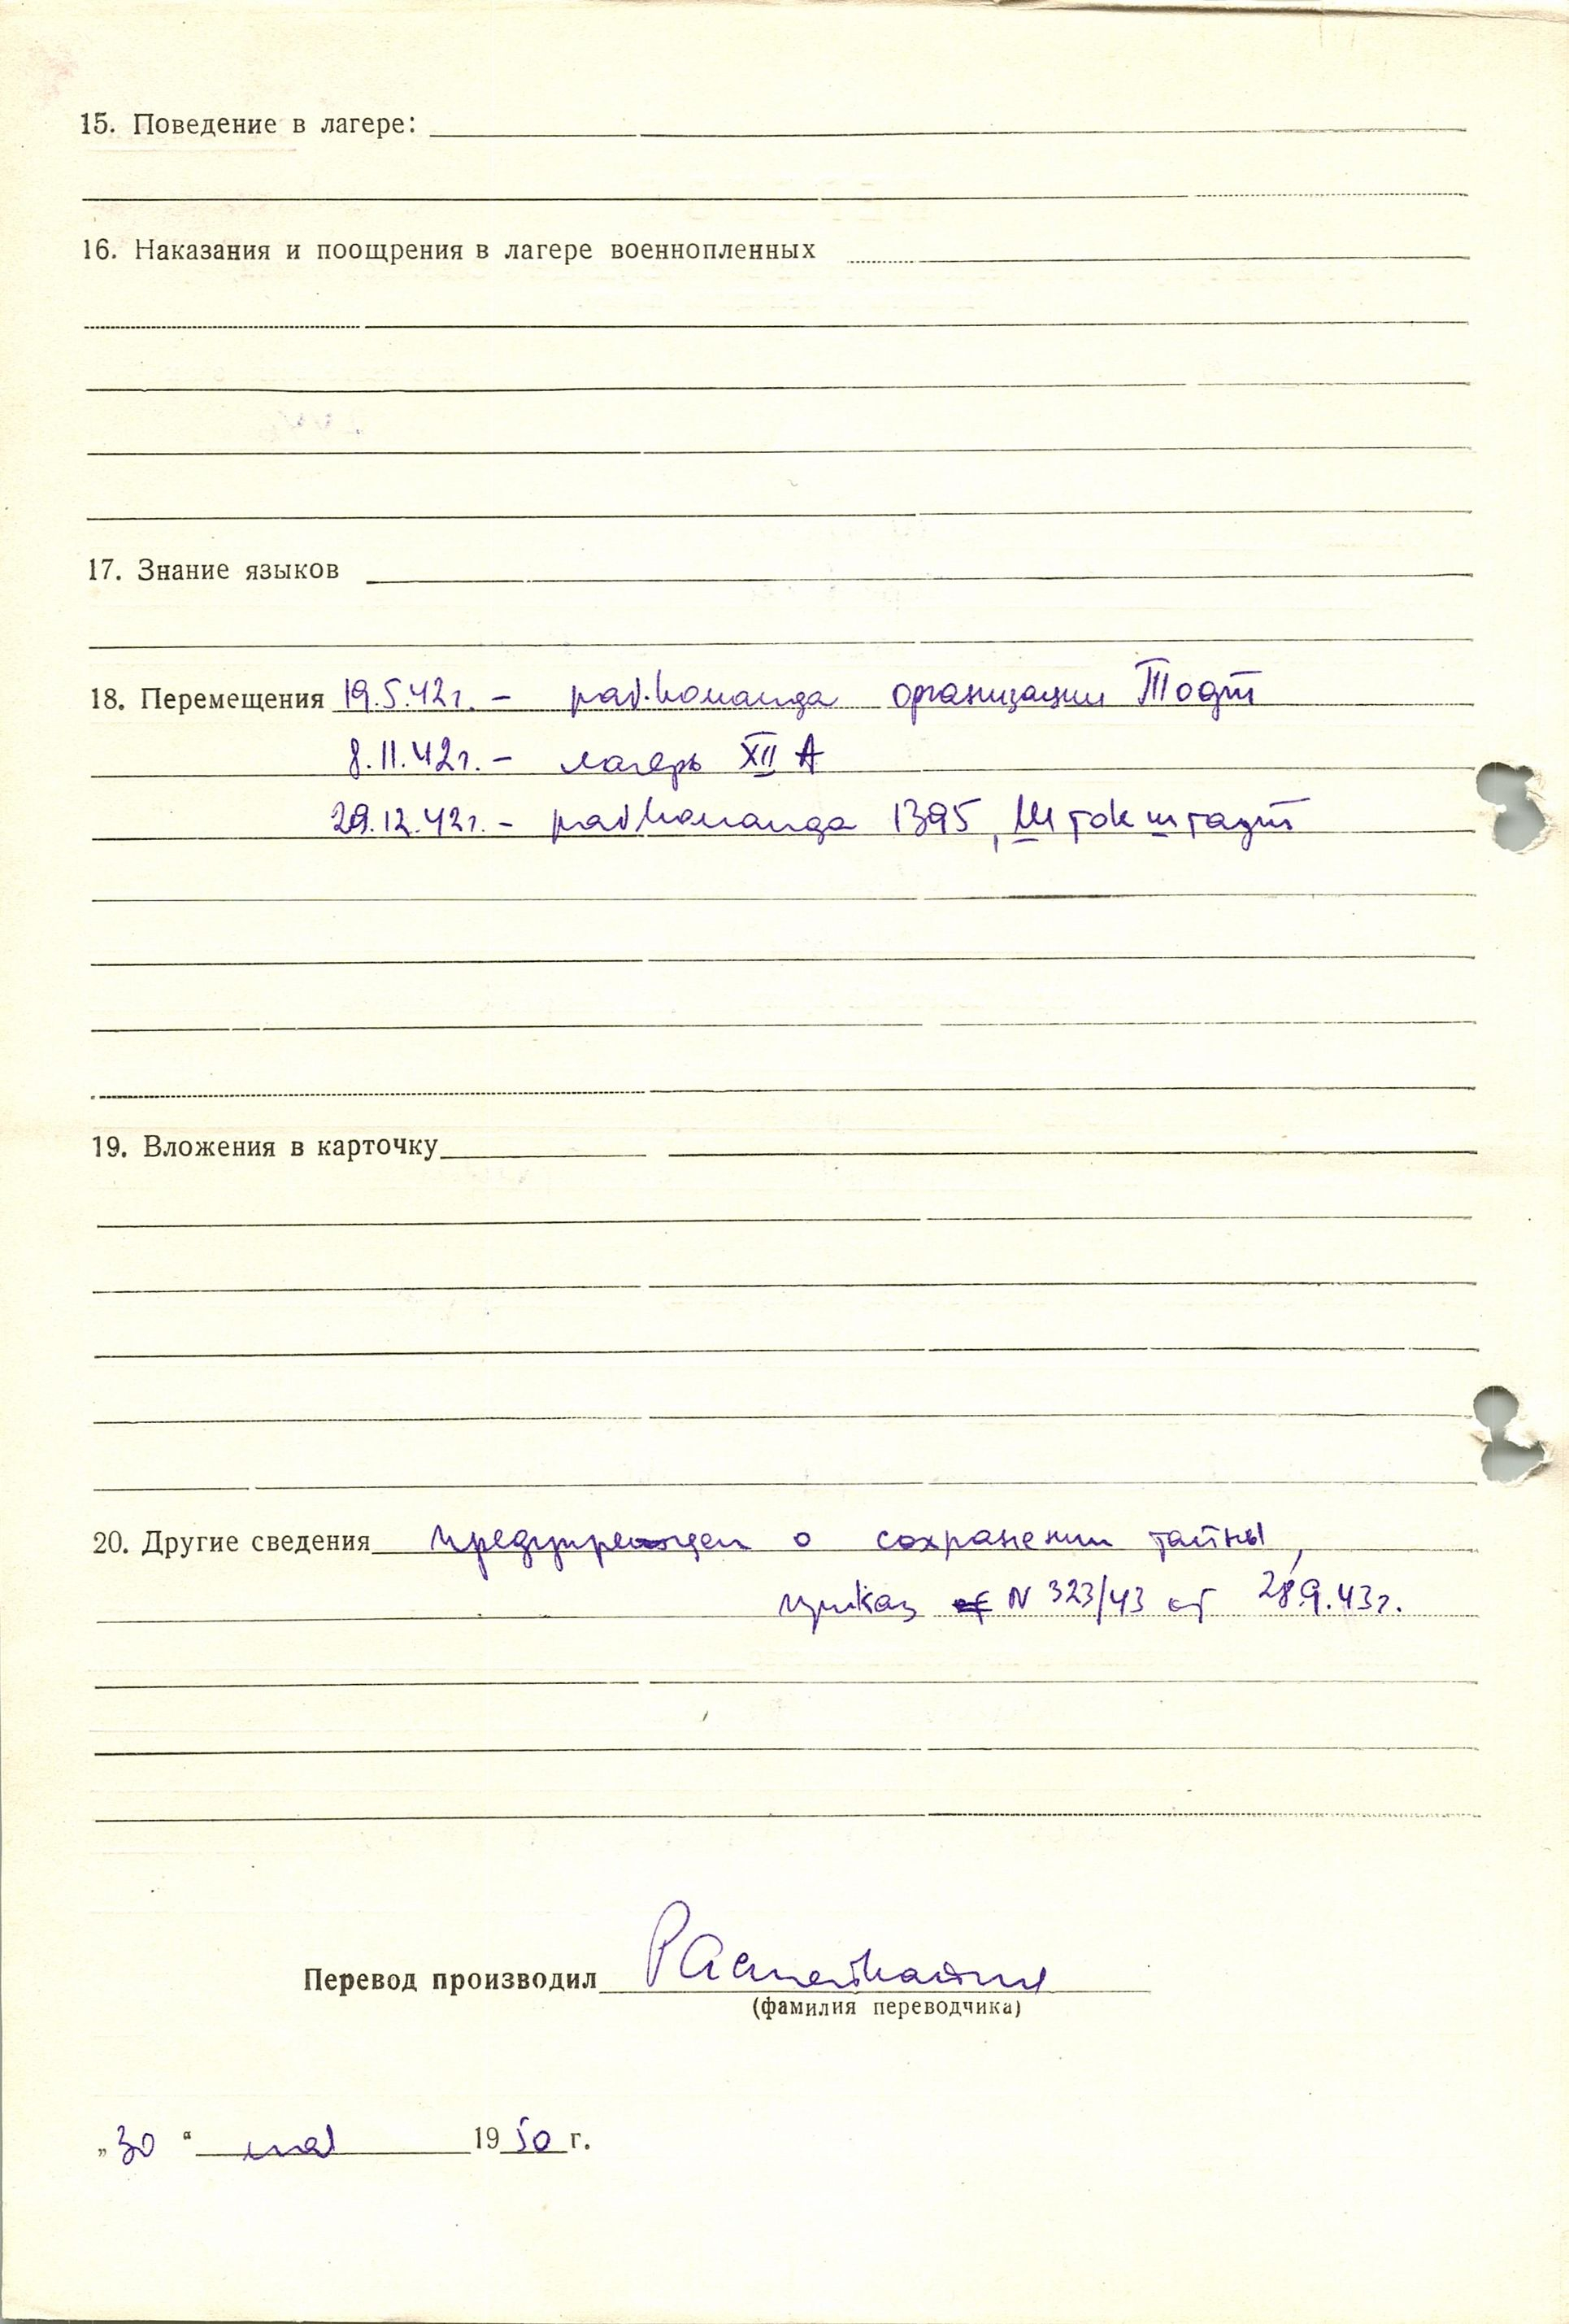 15. Поведение в лагере:
16. Наказания и поощрения в лагере военнопленных
17. Знание языков
18. Перемещения 19.5.42г. – раб.команда организации Тодт
8.11.42г. – лагерь XII А
29.12.42г. – рабкоманда 1395, Штокштадт
19. Вложения в карточку
20. Другие сведения предупрежден о сохранении тайны,
приказ N 323/43 от 28.9.43г.
Перевод производил
(фамилия переводчика)
„30“ мая 1950 г.